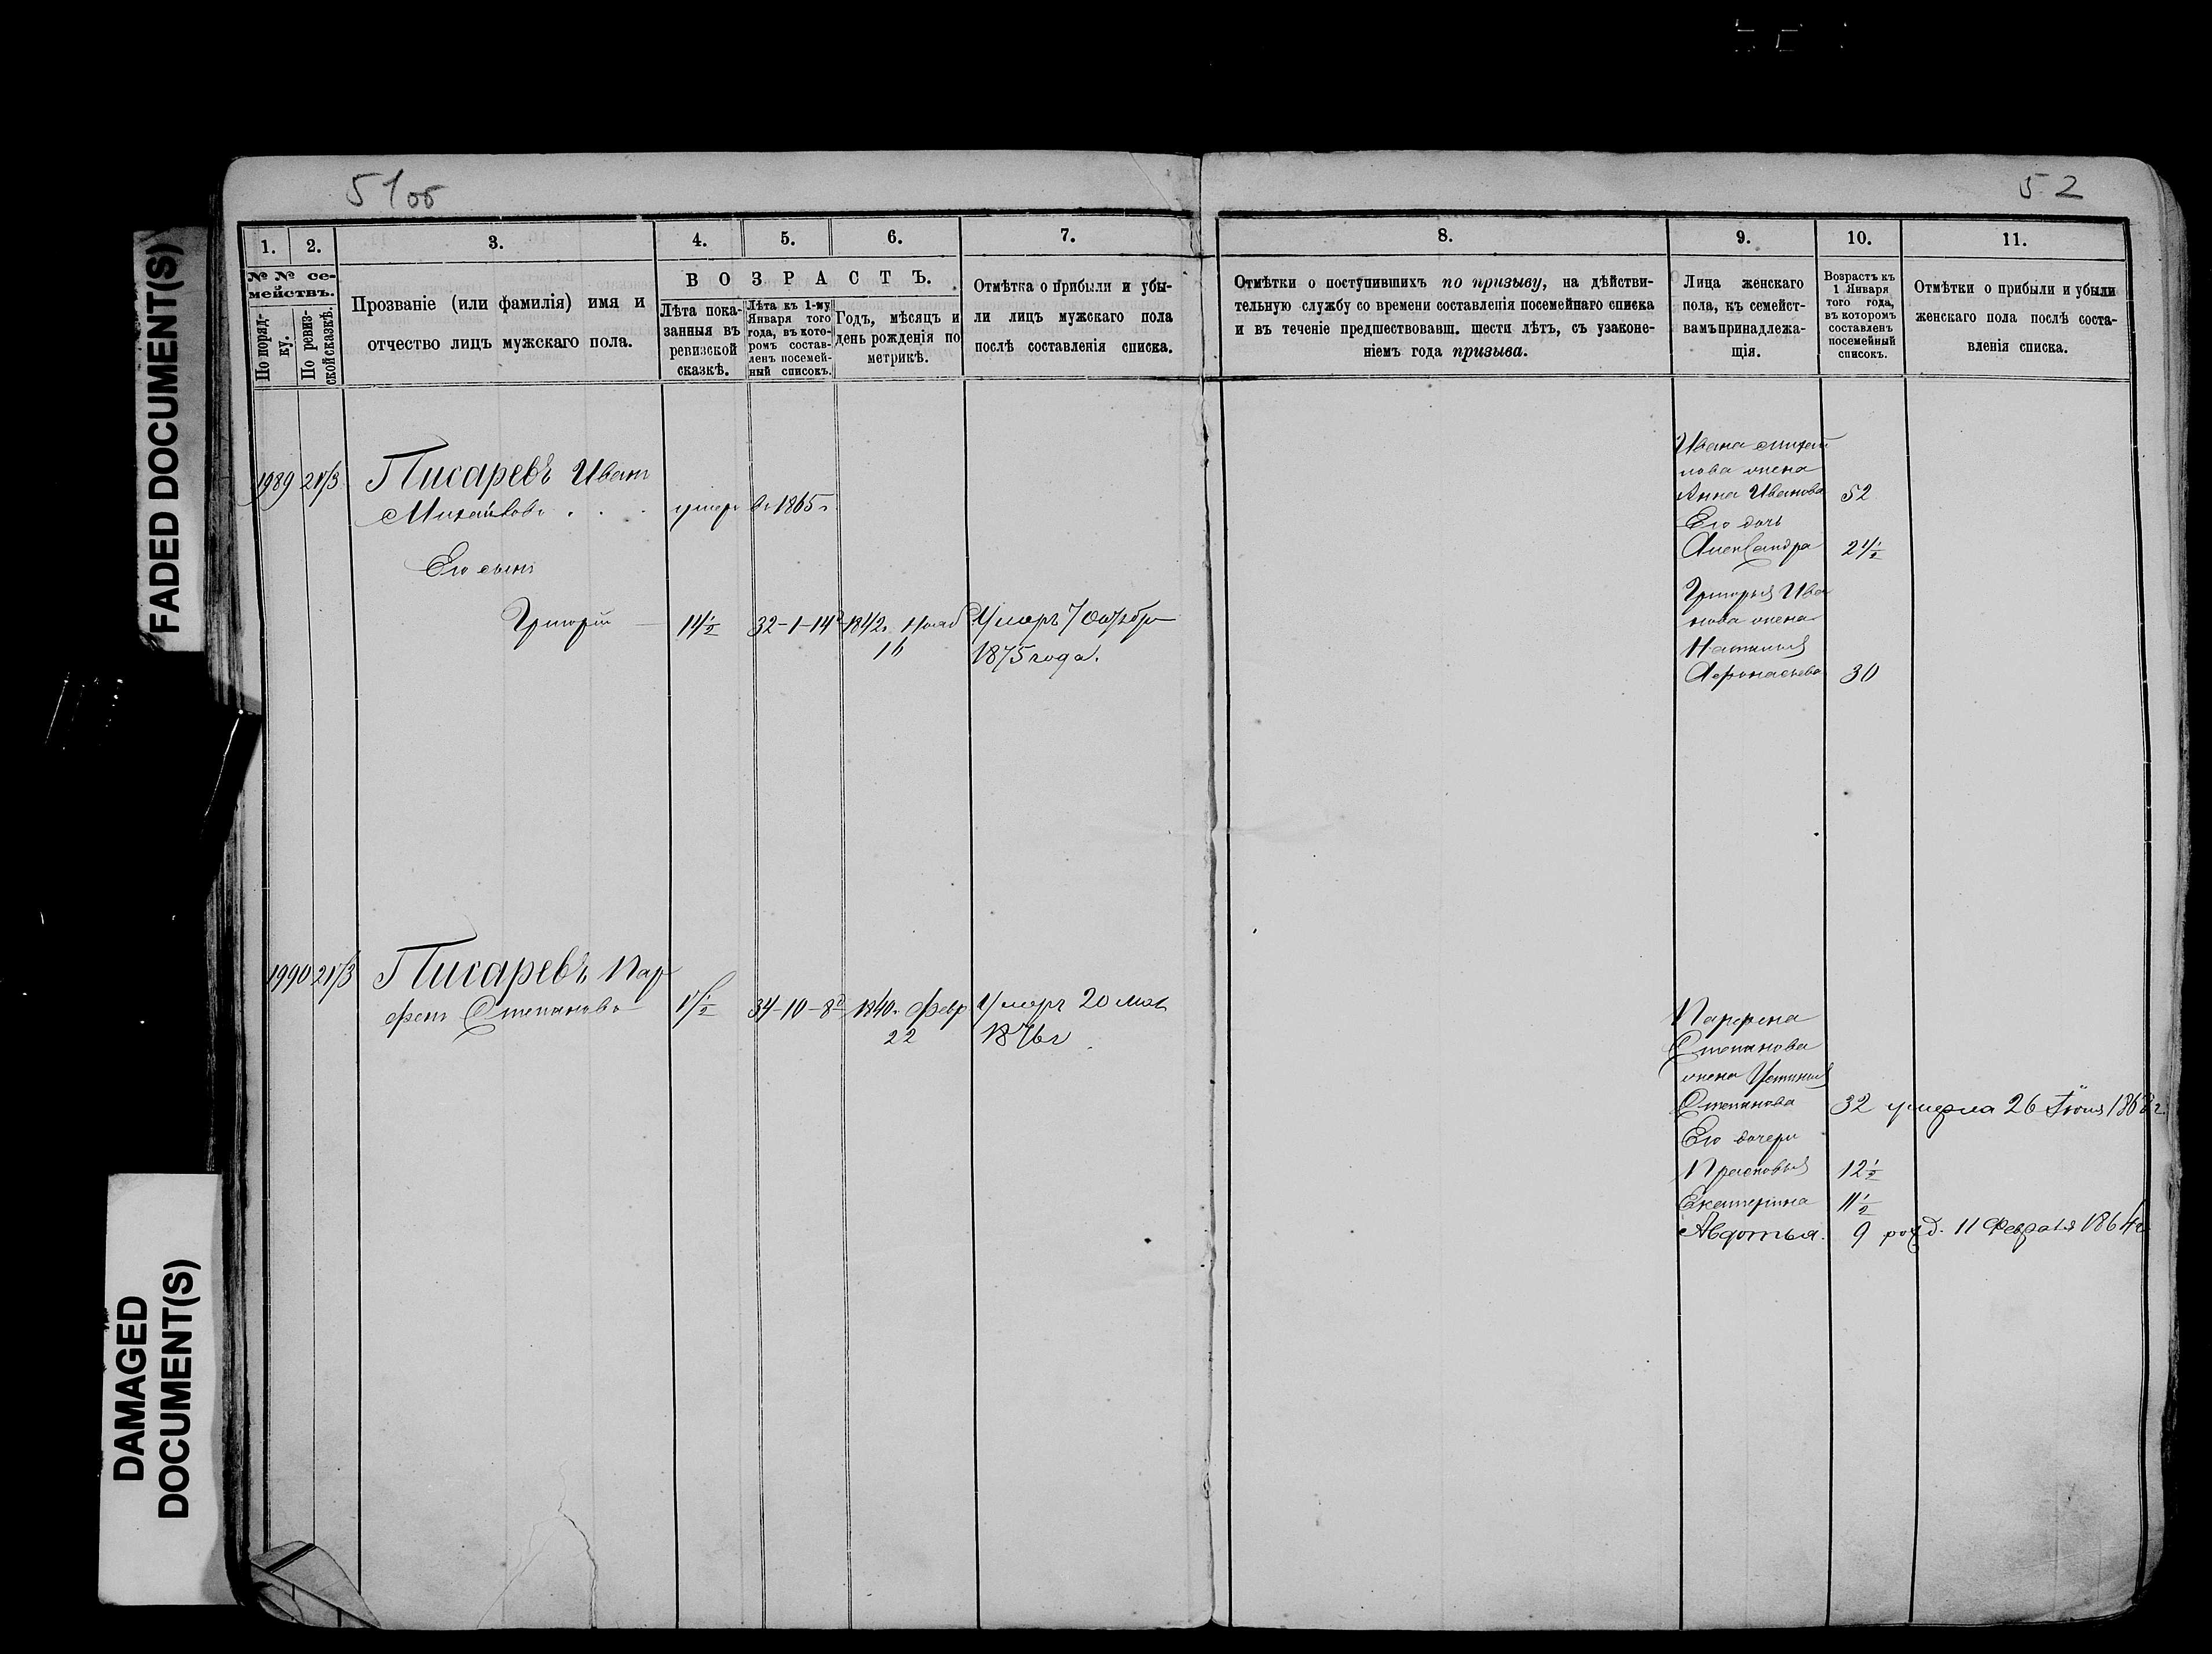 5 1об
52
FADED DOCUMENT(S)
DAMAGED
DOCUMENT(S)
1.
2.
3.
4.
5.
6.
7.
№ № се-
мействъ.
По поряд-
ку.
По ревиз-
ской сказкѣ.
Прозваніе (или фамилія) имя и
отчество лицъ мужскаго пола.
ВОЗРАСТЪ.
Лѣта пока-
занныя въ
ревизской
сказкѣ.
Лѣта къ 1-му
Января того
года, въ кото-
ромъ состав-
ленъ посемей-
ный списокъ.
Годъ, мѣсяцъ и
день рожденія по
метрикѣ.
Отмѣтка о прибыли и убы-
ли лицъ мужскаго пола
послѣ составленія списка.
1989 Писаревъ Иванъ
Михайловъ . . . умеръ въ 1865 г
Его сынъ
Григорій 14½ 32-1-14 1842 г. Нояб Умеръ 7 Октября
16 1875 года.
1990 Писаревъ Пар
фенъ Степановъ 34-10-8 1840 г. Февр Умеръ 20 мая
22 1876 г
8.
9.
10.
11.
Отмѣтки о поступившихъ по призыву, на дѣйстви-
тельную службу со времени составленія посемейнаго списка
и въ теченіе предшествовавш. шести лѣтъ, съ узаконе-
ніемъ года призыва.
Лица женскаго
пола, къ семейст-
вамъ принадлежа-
щія.
Возрастъ къ
1 Января
того года,
въ которомъ
составленъ
посемейный
списокъ.
Отмѣтки о прибыли и убыли
женскаго пола послѣ соста-
вленія списка.
Ивана Михай
лова жена
Анна Иванова 52
Его дочь
Александра 21½
Григорья Ива
нова жена
Наталья
Афонасьева 30
Парфена
Степанова
жена Устинья
Степанова 32 умерла 26 Іюня
Его дочери
Прасковья 12½
Екатерина 11½
Авдотья. 9 рожд. 11 Февраля 1864 г